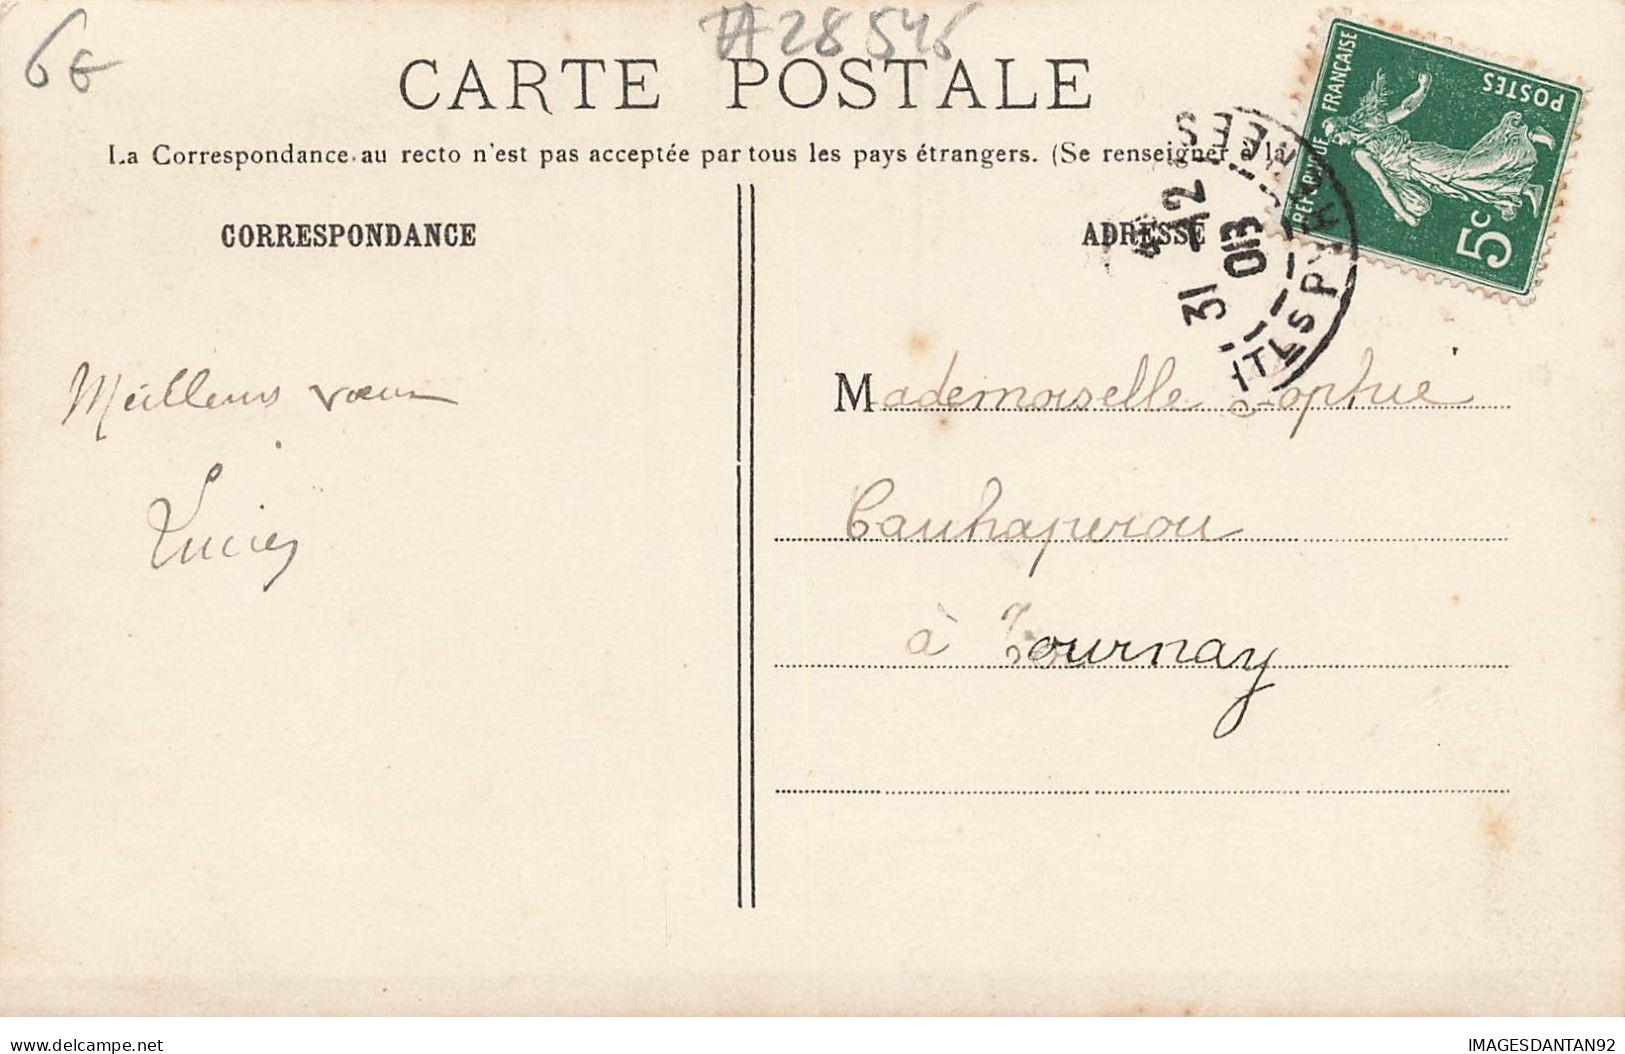 6€
728546
CARTE POSTALE
La Correspondance au recto n'est pas acceptée par tous les pays étrangers. (Se renseigner à la
CORRESPONDANCE
ADRESSE
REPUBLIQUE FRANÇAISE
POSTES
5c
31 -12
013
HTES PYRENEES
Meilleurs vœux
Mademoiselle Sophie
Cauhaperou
à Tournay
delcampe.net
IMAGESDANTAN92